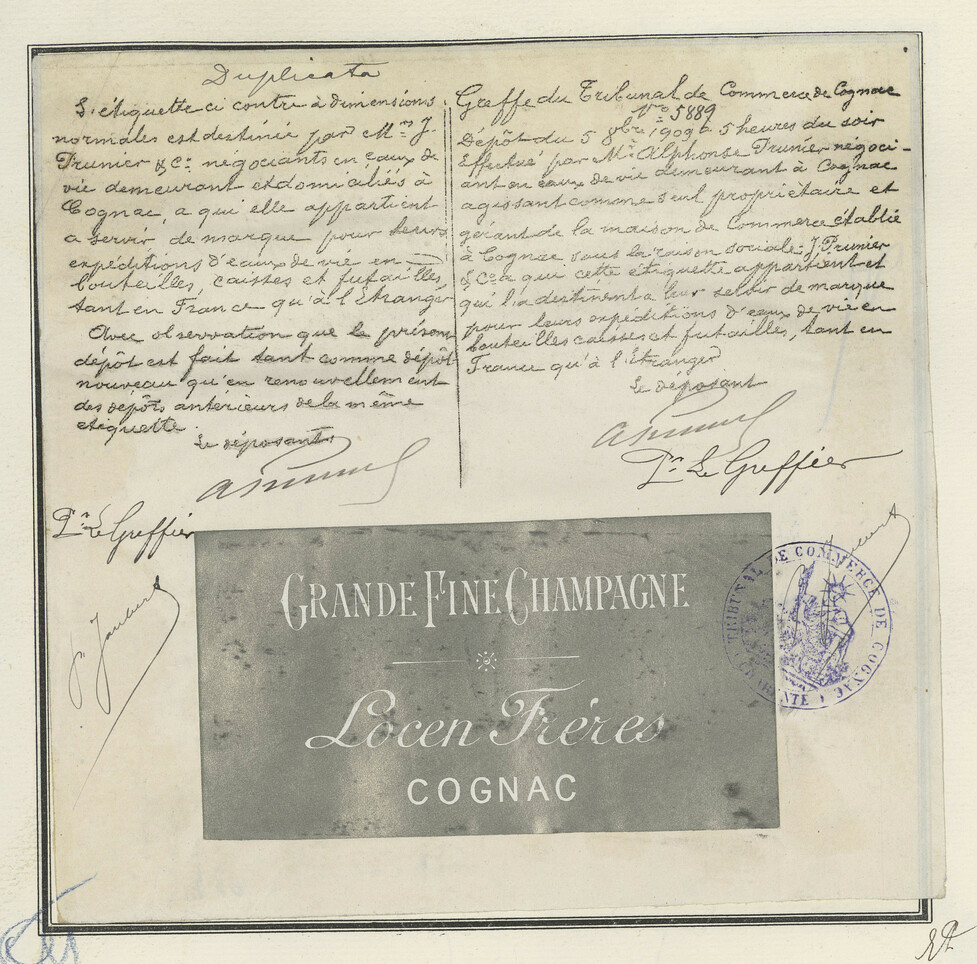 Duplicata
L'étiquette ci contre à dimensions
normales est destinée par MM. J.
Prunier & Co. négociants en eaux de
vie demeurant et domiciliés à
Cognac, a qui elle appartient
a servir de marque pour leurs
expéditions d'eaux de vie en
bouteilles, caisses et futailles,
tant en France qu'à l'Étranger
Avec observation que le présent
dépôt est fait tant comme dépôt
nouveau qu'en renouvellement
des dépôts antérieurs de la même
etiquette.
Le déposants
APrunier
Pr. Le Greffier
Greffe du Tribunal de Commerce de Cognac
No 5889
Dépôt du 5 9bre 1909 à 5 heures du soir
Effectué par Mr. Alphonse Prunier négoci-
ant en eaux de vie demeurant à Cognac
agissant comme seul propriétaire et
gérant de la maison de Commerce établie
à Cognac sous la raison sociale: J. Prunier
& Co a qui cette étiquette appartient et
qui la destinent a leur servir de marque
pour leurs expéditions d'eaux de vie en
bouteilles caisses et futailles, tant en
France qu'à l'Étranger
Le déposant
APrunier
Pr. Le Greffier
GRANDE FINE CHAMPAGNE
Locen Fréres
COGNAC
TRIBUNAL DE COMMERCE DE COGNAC